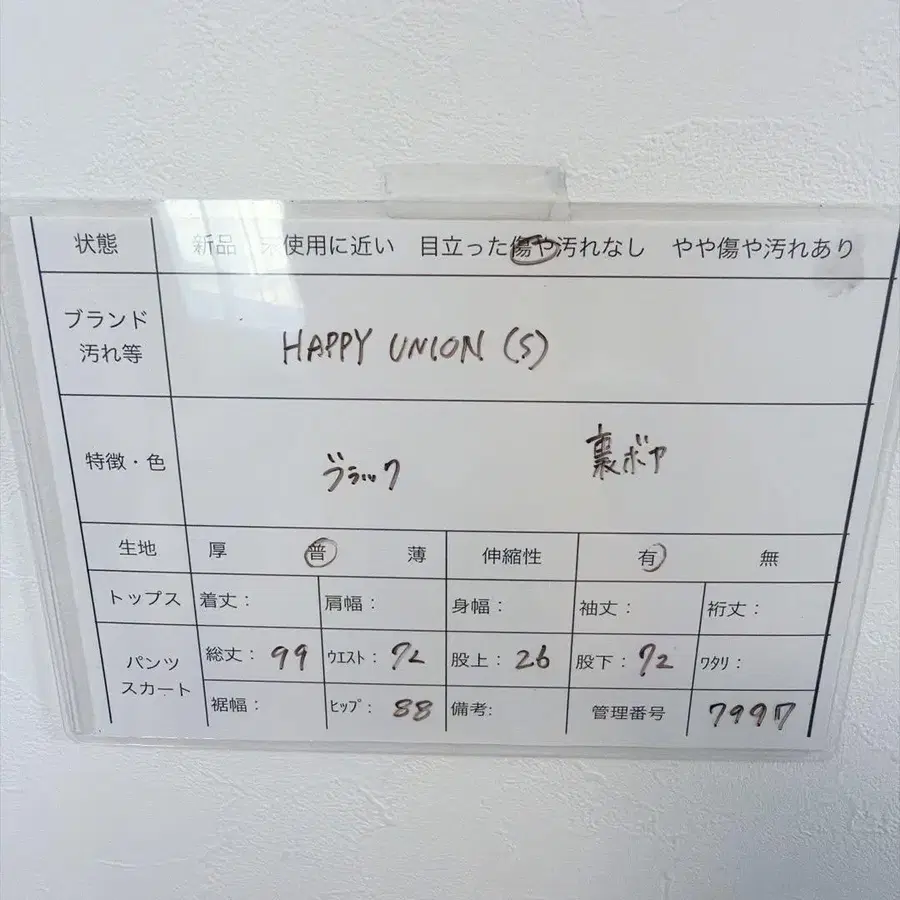 状態 新品 未使用に近い 目立った傷や汚れなし やや傷や汚れあり
ブランド
汚れ等
HAPPY UNION (S)
特徴・色 ブラック 裏ボア
生地 厚 普 薄 伸縮性 有 無
トップス 着丈: 肩幅: 身幅: 袖丈: 裄丈:
パンツ
スカート
総丈: 99 ウエスト: 72 股上: 26 股下: 72 ワタリ:
裾幅: ヒップ: 88 備考: 管理番号 7997